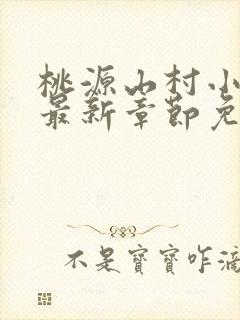 桃源山村小
最新章节免
不是宝宝咋滴